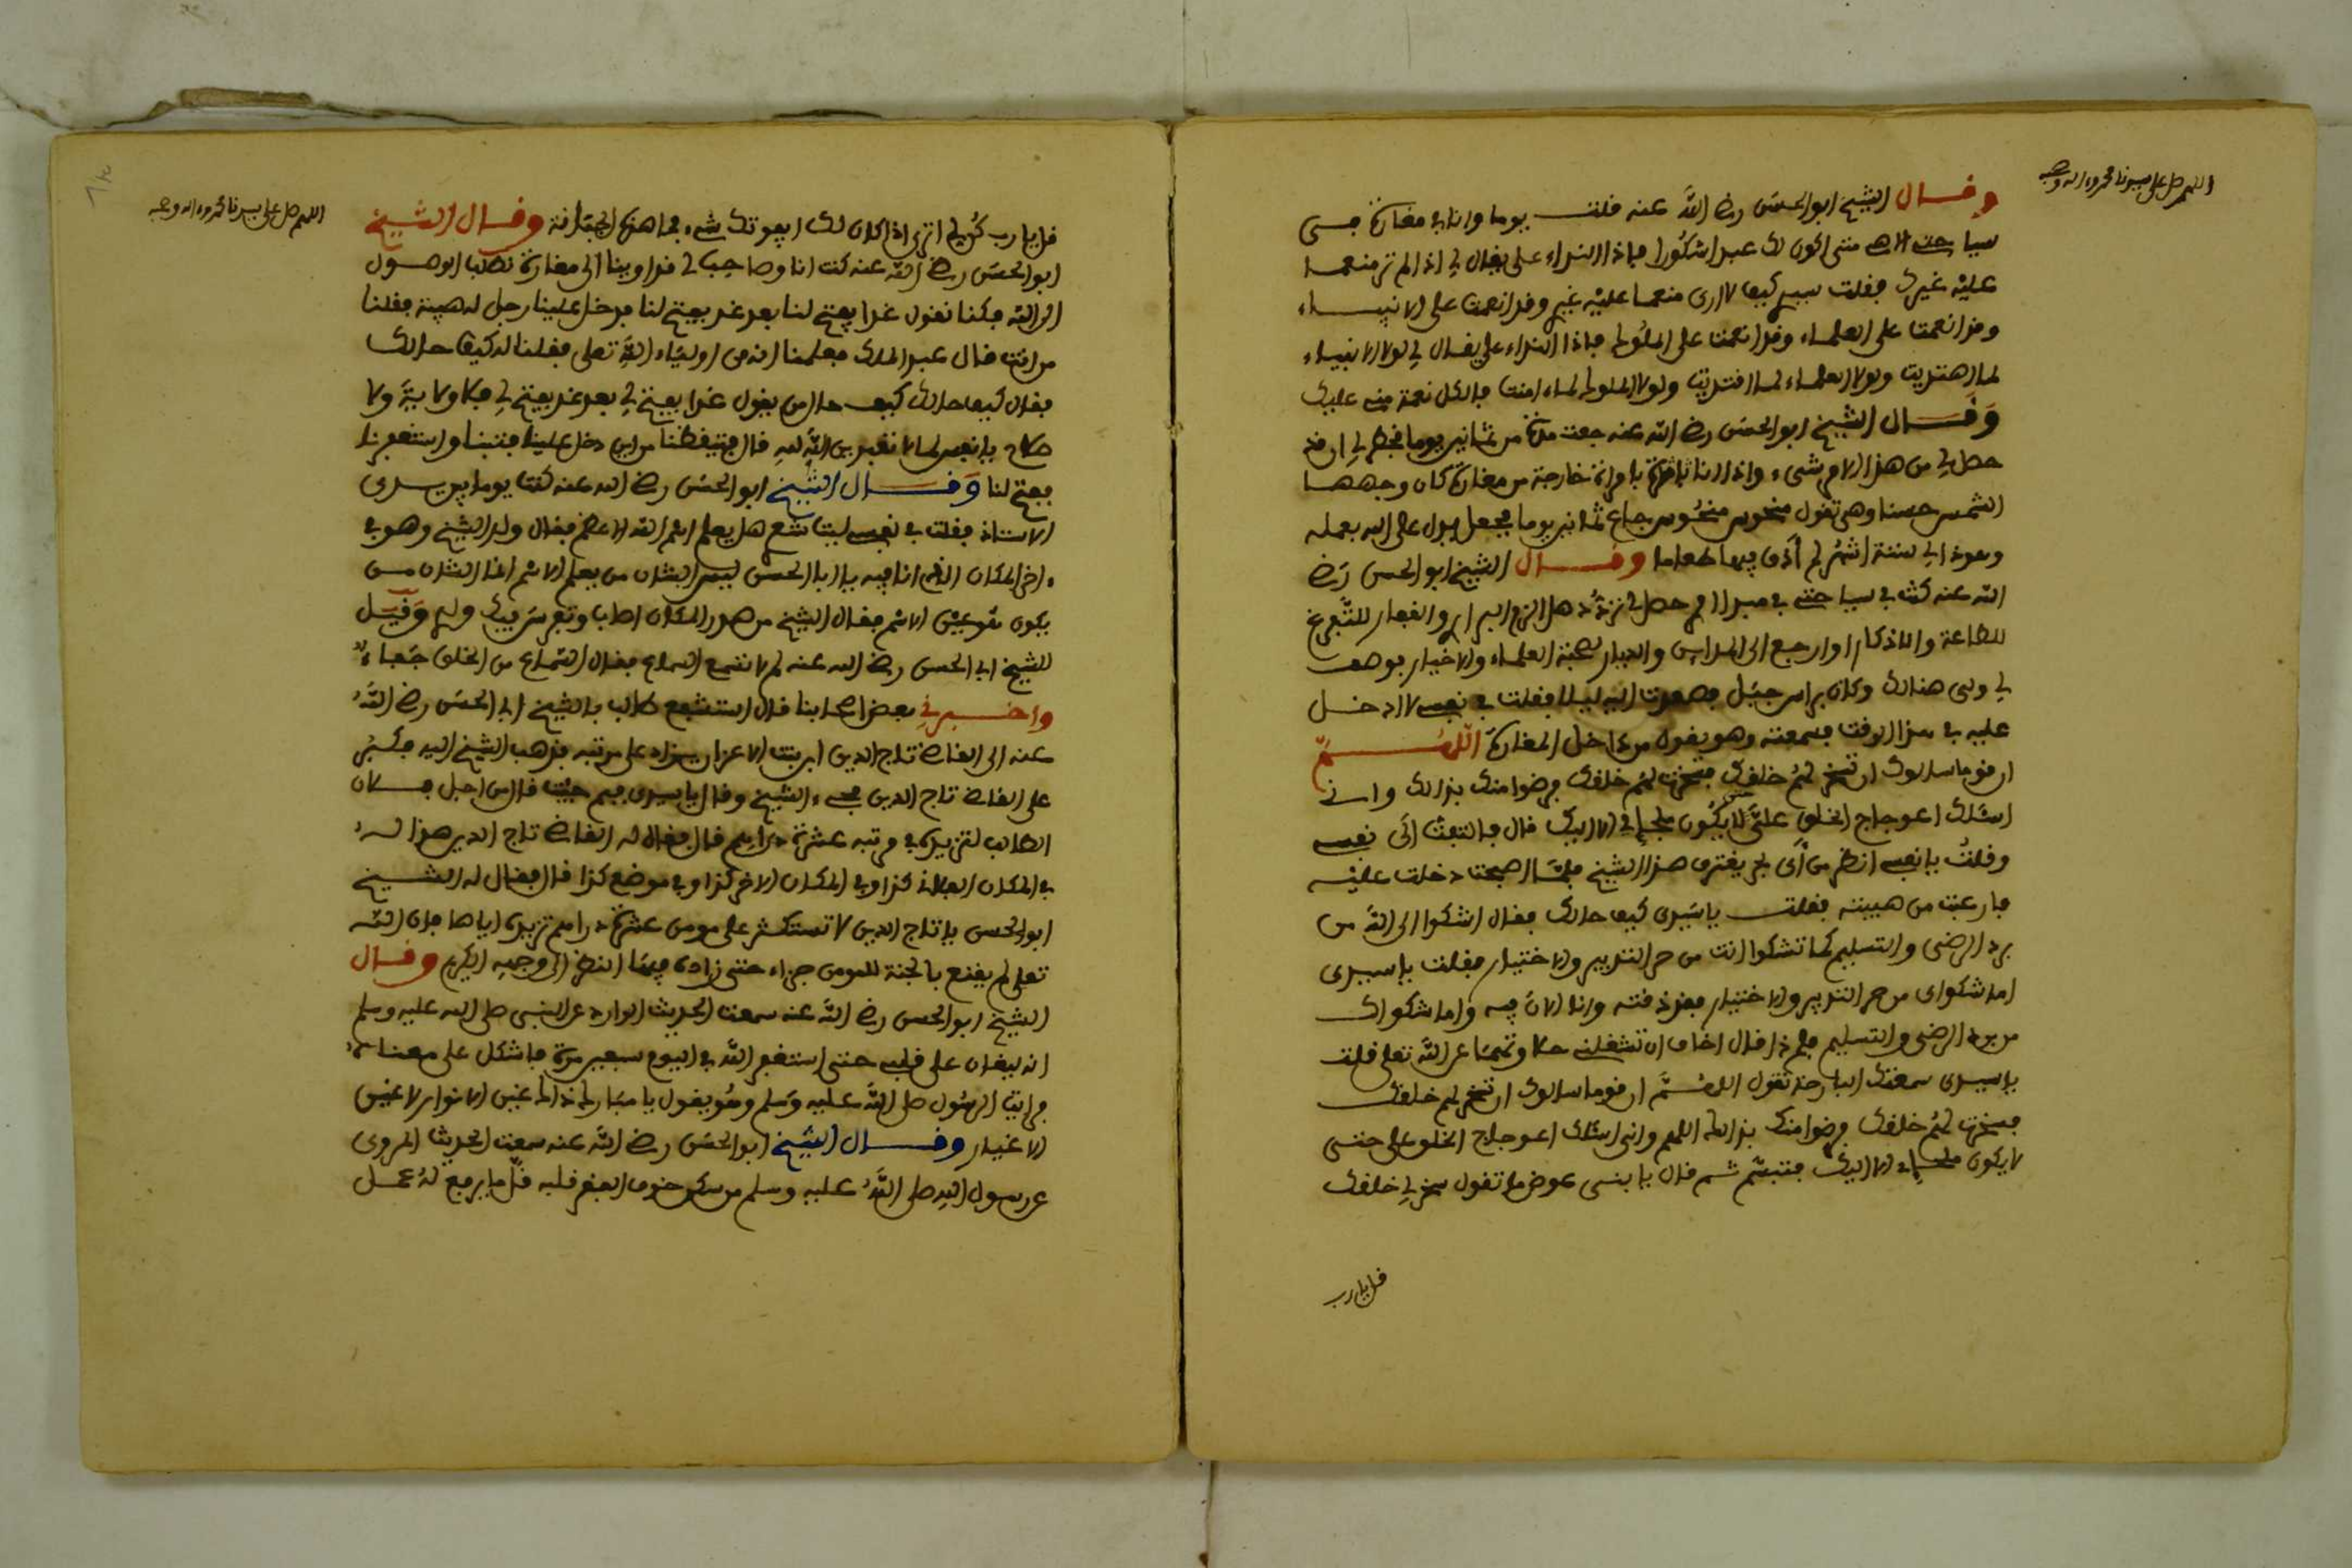 اللهم صل على سيدنا محمد وءاله وصحبه
وقال الشيخ ابو الحسن رضي الله عنه قلت يوما وانا في مغارة في
سياحتي الاهي متى اكون لك عبدا شكورا فاذا النداء علي يقال لي اذا لم تر منعما
عليه غيرك فقلت سيدي كيف لا ارى منعما عليه غيري وقد انعمت على الانبياء
وقد انعمت على العلماء وقد انعمت على الملوك فاذا النداء علي يقال لي لولا الانبياء
لما اهتديت ولولا العلماء لما اقتديت ولولا الملوك لما امنت فالكل نعمة مني عليك
وقال الشيخ ابو الحسن رضي الله عنه جعت مدة من ثمانين يوما فخطر لي ان قد
حصل لي من هذا الامر شيء واذا انا بامراة خارجة من مغارة كان وجهها
الشمس حسنا وهي تقول منحوس منحوس جاع ثمانين يوما فجعل يدل على الله بعمله
وهوذا لي ستة اشهر لم أذق فيها طعاما وقال الشيخ ابو الحسن رضي
الله عنه كنت في سياحتي في مبدا امري حصل لي تردد هل الزم البراري والقفار للتفرغ
للطاعة والاذكار او ارجع الى المداين والديار لصحبة العلماء والاخيار فوصف
لي ولي هنالك وكان براس جبل فصعدت اليه ليلا فقلت في نفسي لا ادخل
عليه في هذا الوقت فسمعته وهو يقول من داخل المغارة اللهم
ان قوما سالوك ان تسخر لهم خلقك فسخرت لهم خلقك فرضوا منك بذالك واني
اسئلك اعوجاج الخلق علي حتى لا يكون ملجإي الا اليك قال فالتفت الى نفسي
وقلت يا نفسي انظر من أي بحر يغترف هذا الشيخ فلما اصبحت دخلت عليه
فارعبت من هيبته فقلت يا سيدي كيف حالك فقال اشكوا الى الله من
برد الرضى والتسليم كما تشكوا انت من حر التدبير والاختيار فقلت يا سيدي
اما شكواي من حر التدبير والاختيار فقد ذقته وانا الان فيه واما شكواك
من برد الرضى والتسليم فلم ذا قال اخاف ان تشغلني حلاوتهما عن الله تعلى قلت
يا سيدي سمعتك البارحة تقول اللهم ان قوما سالوك ان تسخر لهم خلقك
فسخرت لهم خلقك فرضوا منك بذالك اللهم واني اسئلك اعوجاج الخلق علي حتى
لا يكون ملجإي الا اليك فتبسم ثم قال يا بني عوض ما تقول سخر لي خلقك
قل يا رب
اللهم صل على سيدنا محمد وءاله وصحبه
قل يا رب كن لي اترى اذا كان لك ايفوتك شيء فما هذه الجبانة وقال الشيخ
ابو الحسن رضي الله عنه كنت انا وصاحب لي قد اوينا الى مغارة نطلب الوصول
الى الله فكنا نقول غدا يفتح لنا بعد غد يفتح لنا فدخل علينا رجل له هيبة فقلنا
من انت قال عبد الملك فعلمنا انه من اولياء الله تعلى فقلنا له كيف حالك
فقال كيف حالك كيف حال من يقول غدا يفتح لي بعد غد يفتح لي فلا ولاية ولا
فلاح يا نفس لم لا تعبدين الله لله قال فتيقظنا من اين دخل علينا فتبنا واستغفرنا
ففتح لنا وقال الشيخ ابو الحسن رضي الله عنه كنت يوما بين يدي
الاستاذ فقلت في نفسي ليت شعري هل يعلم اسم الله الاعظم فقال ولد الشيخ وهو في
ءاخر المكان الذي انا فيه يا ابا الحسن ليس الشان من يعلم الاسم انما الشان من
يكون هو عين الاسم فقال الشيخ من صدر المكان اصاب وتفرس فيك ولدي وقيل
للشيخ ابي الحسن رضي الله عنه لم لا تسمع السماع فقال السماع من الخلق جفاء
واخبرني بعض اصحابنا قال استشفع طالب بالشيخ ابي الحسن رضي الله
عنه الى القاضي تاج الدين ابن بنت الاعز ان يزاد على مرتبه فذهب الشيخ اليه فكبر
على القاضي تاج الدين مجيء الشيخ وقال يا سيدي فيم جئت قال من اجل فلان
الطالب لتزيده في مرتبه عشرة دراهم قال فقال له القاضي تاج الدين هذا له
في المكان الفلاني كذا وفي المكان الاخر كذا وفي موضع كذا قال فقال له الشيخ
ابو الحسن يا تاج الدين لا تستكثر على مومن عشرة دراهم تزيده اياها فان الله
تعلى لم يقنع بالجنة للمومن جزاء حتى زاده فيها النظر الى وجهه الكريم وقال
الشيخ ابو الحسن رضي الله عنه سمعت الحديث الوارد عن النبي صلى الله عليه وسلم
انه ليغان على قلبي حتى استغفر الله في اليوم سبعين مرة فاشكل علي معناه
فرايت الرسول صلى الله عليه وسلم وهو يقول يا مبارك ذاك غين الانوار لا غين
الاغيار وقال الشيخ ابو الحسن رضي الله عنه سمعت الحديث المروي
عن رسول الله صلى الله عليه وسلم من سكن خوف الفقر قلبه قل ما يرفع له عمل